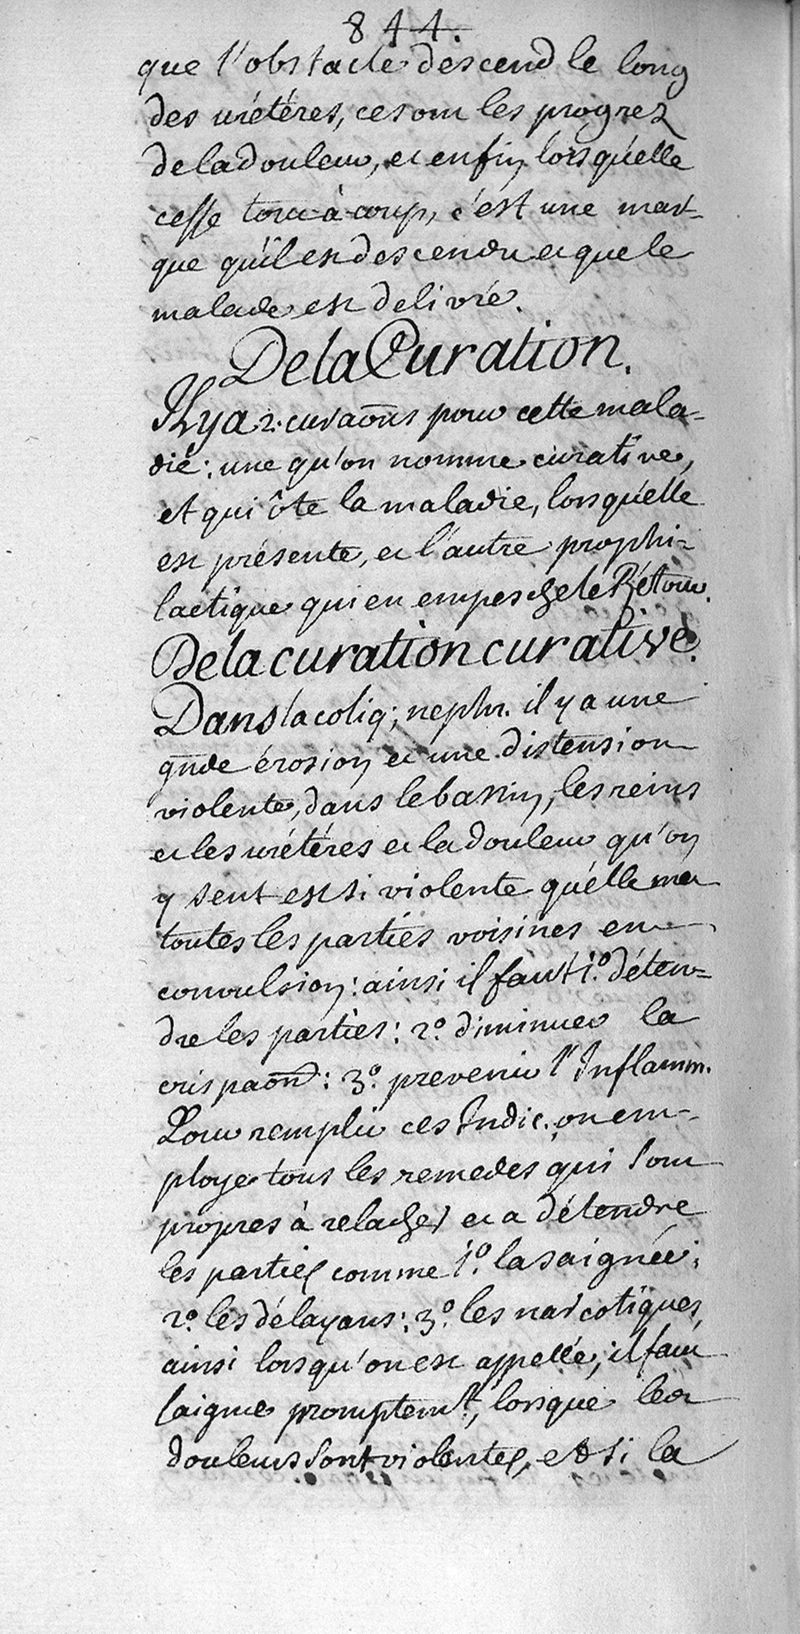 844.
que l'obstacle descend le long
des urétéres, ce sont les progrez
de la douleur, et enfin lorsqu'elle
cesse tout à coup, c'est une mar-
que qu'il est descendu et que le
malade est delivré.
De la Curation.
Il y a 2. curaons pour cette mala-
die: une qu'on nomme curative,
et qui ôte la maladie, lorsqu'elle
est présente, et l'autre prophi-
lactique qui en empesche le Rétour.
De la curation curative.
Dans la coliq; nephr. il y a une
gnde érosion et une distension
violente, dans le bassin, les reins
et les urétéres et la douleur qu'on
y sent est si violente qu'elle met
toutes les parties voisines en
convulsion: ainsi il faut 1.º déten-
dre les parties: 2.º diminuer la
crispaon: 3.º prevenir l'Inflamm.
Pour remplir ces Indic. on em-
ploye tous les remedes qui sont
propres à relacher et a détendre
les parties comme 1.º la saignée;
2.º les délayans: 3.º les narcotiques,
ainsi lorsqu'on est appellé, il faut
saigner promptemt, lorsque les
douleurs sont violentes, et si la